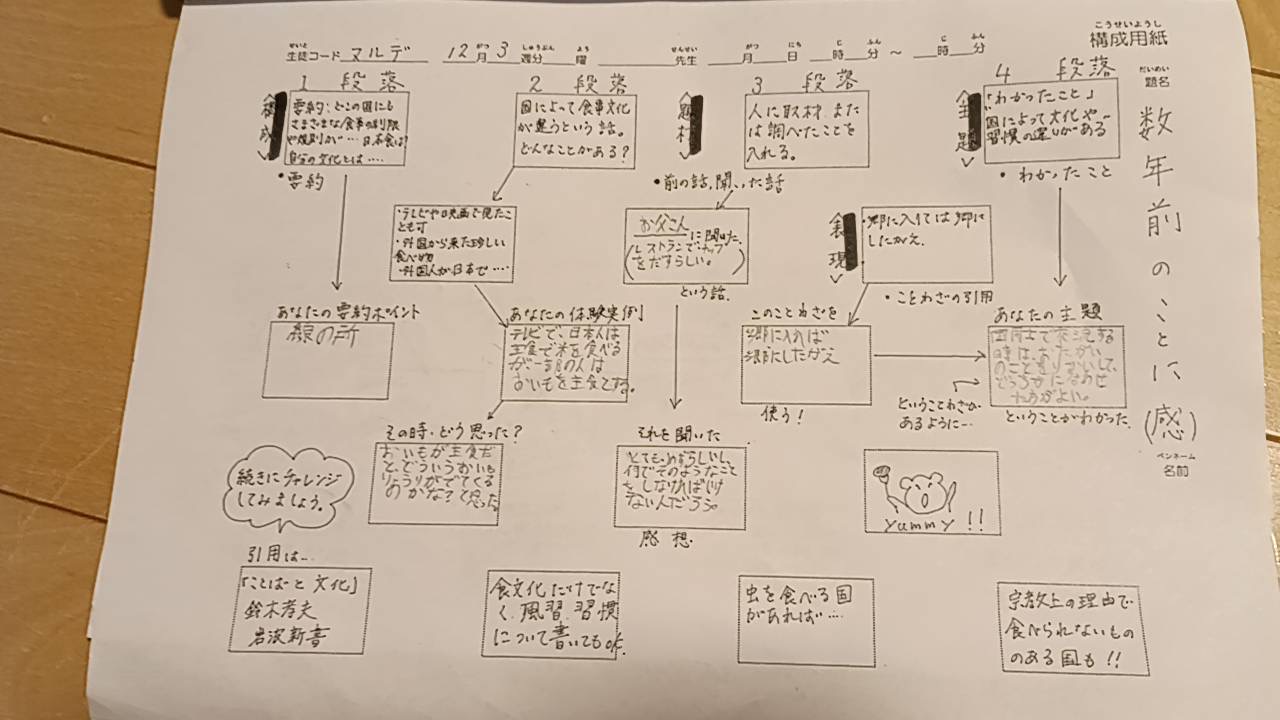 こうせいようし
構成用紙
せいと
生徒コード マルデ 12月 3週分 曜 先生 月 日 時 分 ~ 時 分
がつ しゅうぶん よう せんせい がつ にち じ ふん じ ふん
だいめい
題名
数年前のことに(感)
ペンネーム
名前
1 段落
<構成>
要約:どこの国にも
さまざまな食事の制限
や規則が…日本食は?
自分の文化とは….
・要約
あなたの要約ポイント
線の所
続きにチャレンジ
してみましょう。
引用は…
「ことばと文化」
鈴木孝夫
岩波新書
2 段落
国によって食事文化
が違うという話。
どんなことがある?
・テレビや映画で見たこ
とも可
・外国から来た珍しい
食べ物
・外国人が日本で….
あなたの体験実例
テレビで、日本人は
主食で米を食べる
が一部の人は
おいもを主食とする。
その時、どう思った?
おいもが主食だ
と、どういうおいも
りょうりがでてくる
のかな?と思った。
食文化だけでな
く、風習、習慣
について書いてもOK.
3 段落
<題材>
人に取材、また
は調べたことを
入れる。
・前の話、聞いた話
お父さんに聞いた、
レストランで
をだすらしい。
という話.
それを聞いた
とても、めずらしいし、
何でそのようなこと
をしなければいけ
ないんだろう。
感想
<表現>
・郷に入ては郷に
したがえ.
・ことわざの引用
このことわざを
郷に入れば
郷にしたがえ
使う!
虫を食べる国
があれば….
4 段落
<主題>
「わかったこと」
国によって文化や
習慣の違いがある
・わかったこと
あなたの主題
時は、
ほうがよい。
ということがわかった.
ということわざが
あるように…
yummy!!
宗教上の理由で
食べられないもの
のある国も!!